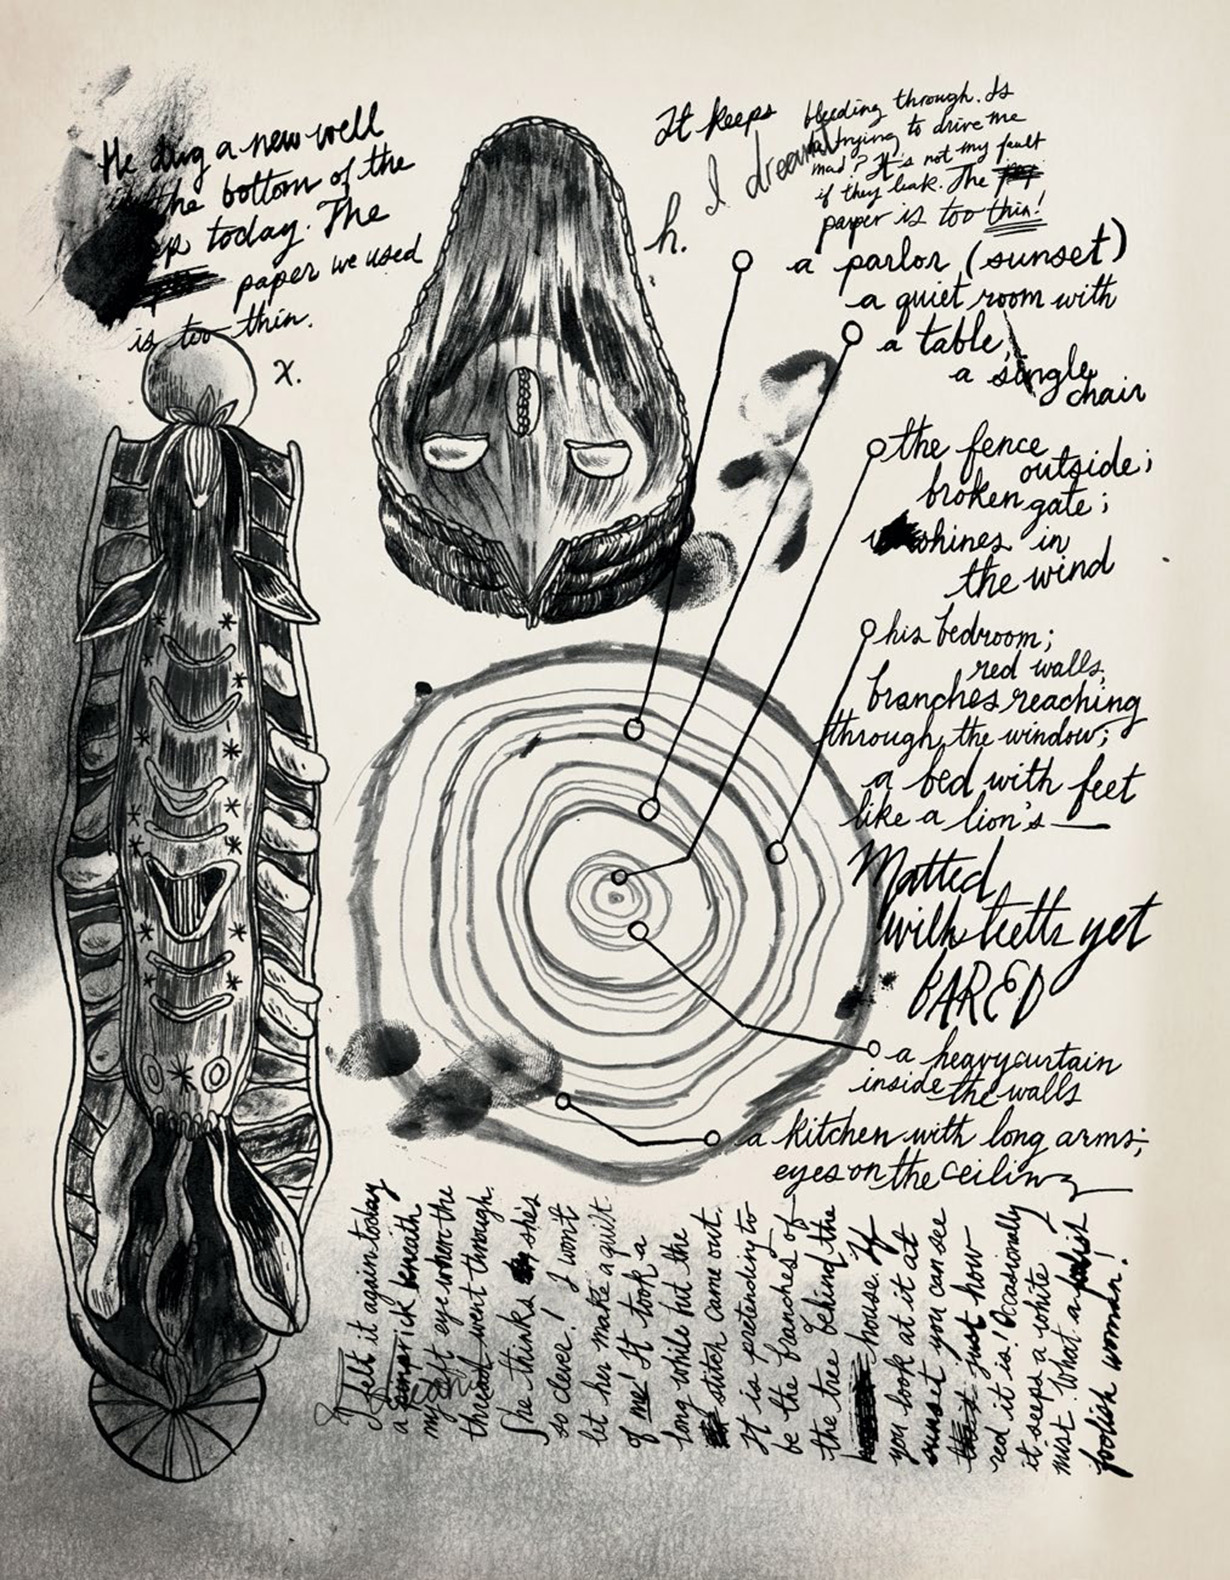 He dug a new well
in the bottom of the
up today. The
paper we used
is too thin.
x.
It keeps
I dream
h.
bleeding through. Is
trying to drive me
mad? It's not my fault
if they leak. The
paper is too thin!
a parlor (sunset)
a quiet room with
a table,
a single
chair
the fence
outside;
broken gate;
whines in
the wind
his bedroom;
red walls,
branches reaching
through the window;
a bed with feet
like a lion's—
Matted
with teeth yet
BARED
a heavy curtain
inside the walls
a kitchen with long arms;
eyes on the ceiling
I felt it again today
a prick beneath
my left eye when the
thread went through.
She thinks she's
so clever! I won't
let her make a quilt
of me! It took a
long while but the
stitch came out.
It is pretending to
be the branches of
the tree behind the
house. If
you look at it at
sunset you can see
just how
red it is! Occasionally
it seeps a white
mist. What a foolish
foolish woman!